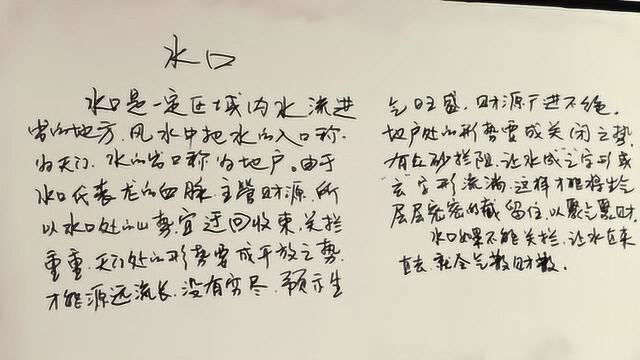 水口
水口是一定区域内水流进
出的地方，风水中把水的入口称
为天门，水的出口称为地户。由于
水口代表龙的血脉，主管财源，所
以水口处的山势，宜迂回收束，关拦
重重，天门处的形势要成开放之势，
才能源远流长，没有穷尽，预示生
气旺盛，财源广进不绝。
地户处的形势要成关闭之势，
有丘砂拦阻，让水成"之"字形或
"玄"字形流淌，这样才能将生气
层层密密的截留住，以聚气聚财。
水口如果不能关拦，让水直来
直去，就会气散财散。